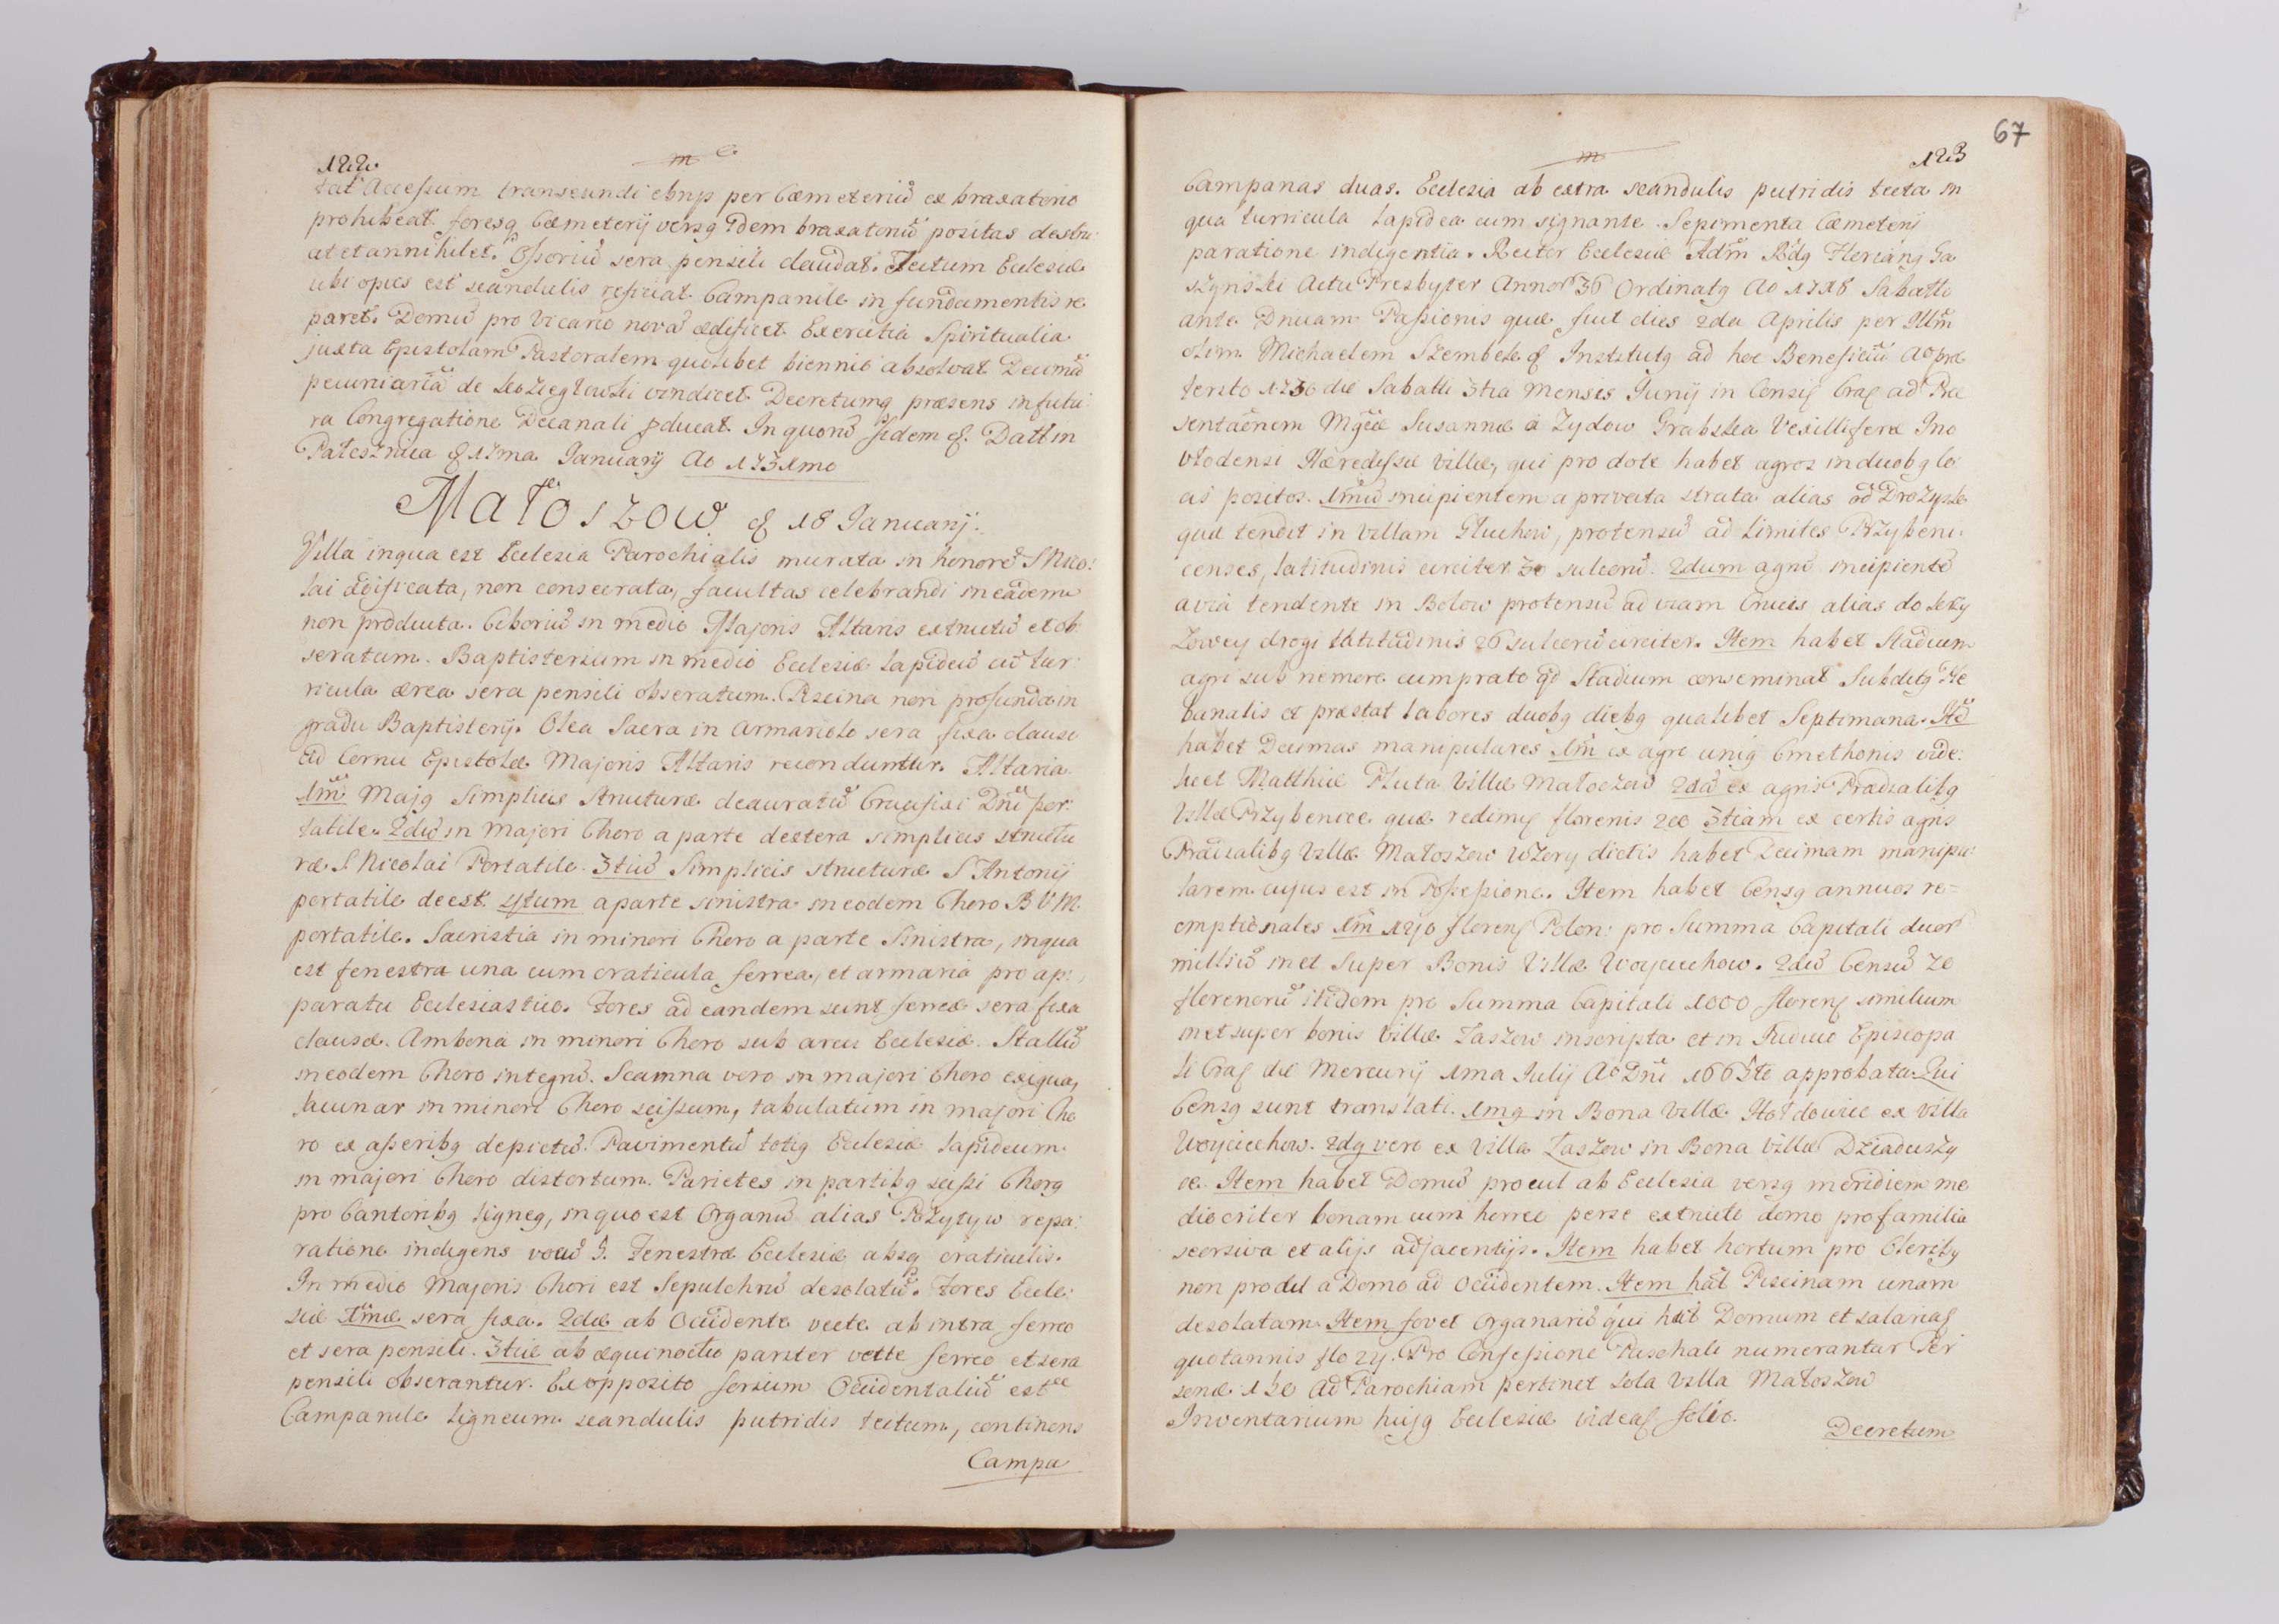 122.
tat Accessum transeundi ebrijs per Cæmeteriũ ex braxatorio
prohibeat foresq Cæmeterij versq Idem braxatoriũ positas destru
at et annihilet. Ossoriũ sera pensili claudat. Tectum Ecclesiæ
ubi opus est scandulis reficiat Campanile in fundamentis re
paret. Domũ pro Vicario novã ædificet Exercitia Spiritualia
juxta Epistolam Pastoralem quolibet biennio absolvat Decimã
pecuniariã de vindicet Decretumq præsens in futu
ra Congregatione Decanali pducat. In quorũ fidem Datt in
17ma Januarij Ao 1731mo
Małoszow 18 Januarij.
Villa in qua est Ecclesia Parochialis murata in honorẽ S Nico:
lai ædificata, non consecrata, facultas celebrandi in eadem
non producta. Ciboriũ in medio Majoris Altaris extructũ et ob:
seratum. Baptisterium in medio Ecclesiæ lapideũ cũ tur:
ricula ærea sera pensili obseratum. Piscina non profunda in
gradu Baptisterij. Olea Sacra in armariolo sera fixa clauso
ad Cornu Epistolæ Majoris Altaris reconduntur. Altaria
1mũ Majq Simplicis Structuræ deauratũ Crucifixi Dnĩ por:
tatile. 2dũ in Majori Choro a parte dextera simplicis structu
ræ S Nicolai Portatile. 3tiũ Simplicis structuræ S Antonij
portatile deest. 4tum a parte sinistra in eodem Choro B V M.
portatile. Sacristia in minori Choro a parte Sinistra, in qua
est fenestra una cum craticula ferrea, et armaria pro ap:
paratu Ecclesiastico. Fores ad eandem sunt ferreæ sera fixa
clausæ. Ambona in minori Choro sub arcu Ecclesiæ. Stallũ
in eodem Choro integrũ. Scamna vero in majori choro exigua,
lacunar in minori Choro scissum, tabulatum in majori Cho
ro ex asseribq depictũ. Pavimentũ totiq Ecclesiæ lapideum
in majori Choro distortum. Parietes in partibq scissi Chorq
pro Cantoribq ligneq, in quo est Organũ alias Pozytyw repa:
ratione indigens vocũ 5. Fenestræ Ecclesiæ absq craticulis.
In medio Majoris Chori est Sepulchrũ desolatũ. Fores Eccle:
siæ 1mæ sera fixa. 2dæ ab Occidente vecte ab intra ferreo
et sera pensili. 3tiæ ab æquinoctio pariter vecte ferreo et sera
pensili obserantur. Ex opposito forium Occidentaliũ est
Campanile ligneum scandulis putridis tectum, continens
Campa
67
123
Campanas duas. Ecclesia ab extra scandulis putridis tecta in
qua turricula lapidea cum signante. Sepimenta Cæmeterij
paratione indigentia. Rector Ecclesiæ Adm̃ Rdq Floriãnq Ga
szynski Actu Presbyter Annor 36 Ordinatq Ao 1718 Sabatto
ante Dnicam Passionis quæ fuit dies 2da Aprilis per Illm̃
olim Michaelem Szembek Institutq ad hoc Beneficiũ Ao præ
terito 1730 die Sabatti 3tia Mensis Junij in Consis Crac ad Præ
sentaõnem Mgcæ Susannæ a Zydow Grabska Vexilliferæ Ino
vlodensi Hæredissæ Villæ, qui pro dote habet agros in duobq lo:
cis positos. 1mũ incipientem a privata strata alias od Drozyske
quæ tendit in villam Gluchow, protensũ ad limites Przybeni:
censes, latitudinis circiter 30 sulcorũ. 2dum agrũ incipientẽ
a via tendente in Bolow protensũ ad viam Crucis alias do
drogi latitudinis 26 sulcorũ circiter. Item habet Stadium
agri sub nemore cum prato qd Stadium conseminat Subditq Ple
banalis et præstat labores duobq diebq qualibet Septimana. Itẽ
habet Decimas manipulares 1m̃ ex agro uniq Cmethonis vide:
licet Matthiæ Pluta Villæ Małoszow 2dũ ex agris Prædialibq
Villæ Przybenice quæ redimit florenis 3tiam ex certis agris
Prædialibq Villæ Małoszow Wzory dictis habet Decimam manipu:
larem cujus est in Possessione. Item habet Censq annuos re=
emptionales 1m̃ 140 floren Polon: pro Summa Capitali duor
milliũ inet Super Bonis Villæ Woyciechow. 2dũ Censũ 70
florenorũ itidem pro Summa Capitali 1000 floren similium
inet super bonis Villæ Łaszow inscripta et in Judicio Episcopa
li Crac die Mercurij 1ma Julij Ao Dnĩ approbata. Qui
Censq sunt translati. 1mq in Bona Villæ Hołdowice ex villa
Woyciechow. 2dq vero ex Villa Łaszow in Bona Villæ Dziaduszy
ce. Item habet Domũ procul ab Ecclesia versq meridiem me
diocriter bonam cum horreo perse extructo domo pro familia
seorsiva et alijs adjacentijs. Item habet hortum pro Oleribq
non procul a Domo ad Occidentem. Item hãt Piscinam unam
desolatam. Item fovet Organariũ qui hãt Domum et salariat
quotannis flo 24. Pro Confessione Paschali numerantur Per
sonæ Ad Parochiam pertinet sola Villa Małoszow
Inventarium hujq Ecclesiæ videas folio.
Decretum